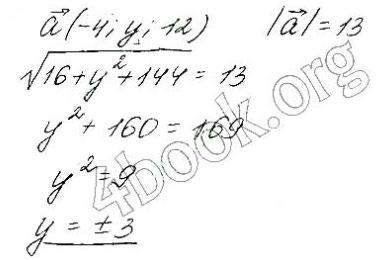 a⃗(-4; y; 12) |a⃗| = 13
√16 + y² + 144 = 13
y² + 160 = 169
y² = 9
y = ±3
4book.org